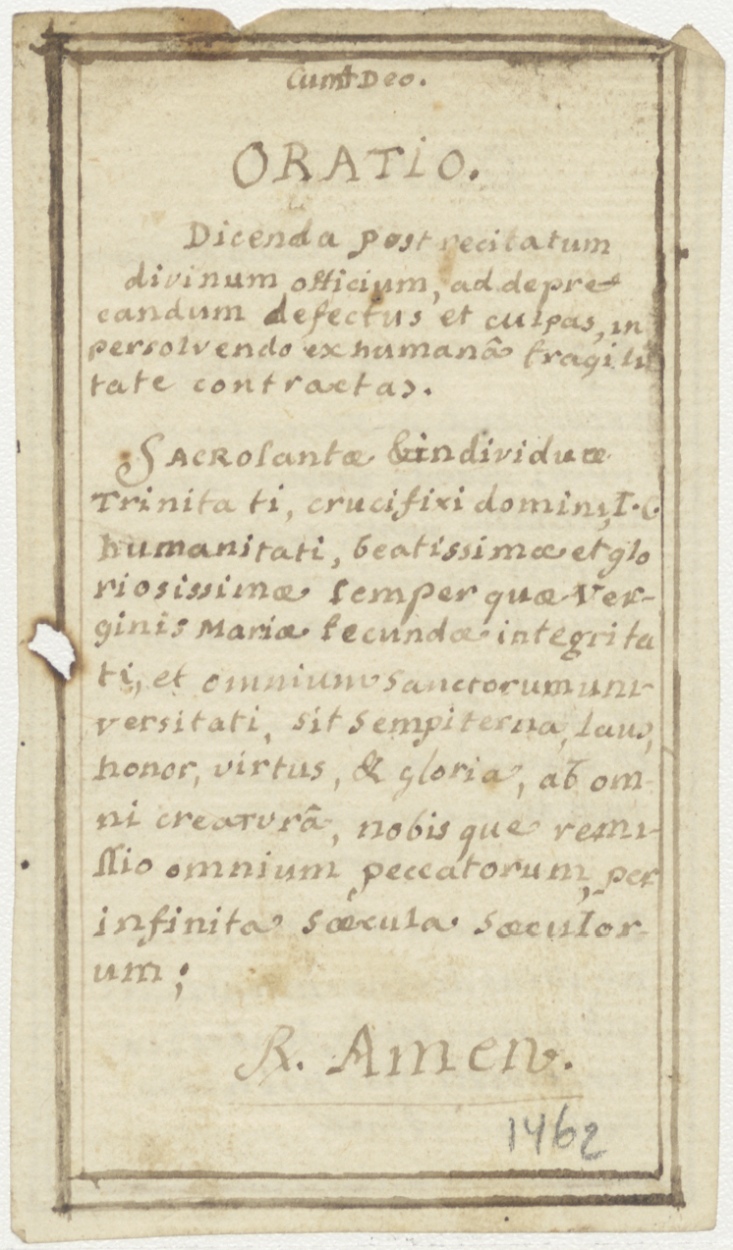 Cum Deo.
ORATIO.
Dicenda post recitatum
divinum officium, ad depre-
candum defectus et culpas, in
persolvendo ex humanâ fragili
tate contractas.
SACROSantæ & individuæ
Trinitati, crucifixi domini, I. C
humanitati, beatissimæ et glo
riosissimæ semper quæ Ver-
ginis Mariæ fecundæ integrita
ti, et omnium sanctorum uni-
versitati, sit sempiterna, laus,
honor, virtus, & gloria, ab om-
ni creaturâ, nobis que remi-
ssio omnium peccatorum, per
infinita sæcula sæculor-
um;
R. Amen.
1462